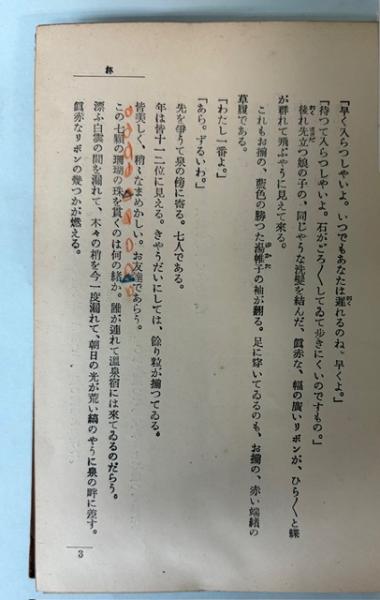 杯
「早く入らつしやいよ。いつでもあなたは遲れるのね。早くよ。」
「待つて入らつしやいよ。石がごろ〳〵してゐて步きにくいのですもの。」
後れ先立つ娘の子の、同じやうな洗髮を結んだ、眞赤な、幅の廣いリボンが、ひら〳〵と蝶
が群れて飛ぶやうに見えて來る。
これもお揃の、藍色の勝つた湯帷子の袖が飜る。足に穿いてゐるのも、お揃の、赤い端緖の
草履である。
「わたし一番よ。」
「あら。ずるいわ。」
先を爭うて泉の傍に寄る。七人である。
年は皆十一二位に見える。きやうだいにしては、餘り粒が揃つてゐる。
皆美しく、稍々なまめかしい。お友達であらう。
この七顆の珊瑚の珠を貫くのは何の緖か。誰が連れて溫泉宿には來てゐるのだらう。
漂ふ白雲の間を漏れて、木々の梢を今一度漏れて、朝日の光が荒い縞のやうに泉の畔に差す。
眞赤なリボンの幾つかが燃える。
3